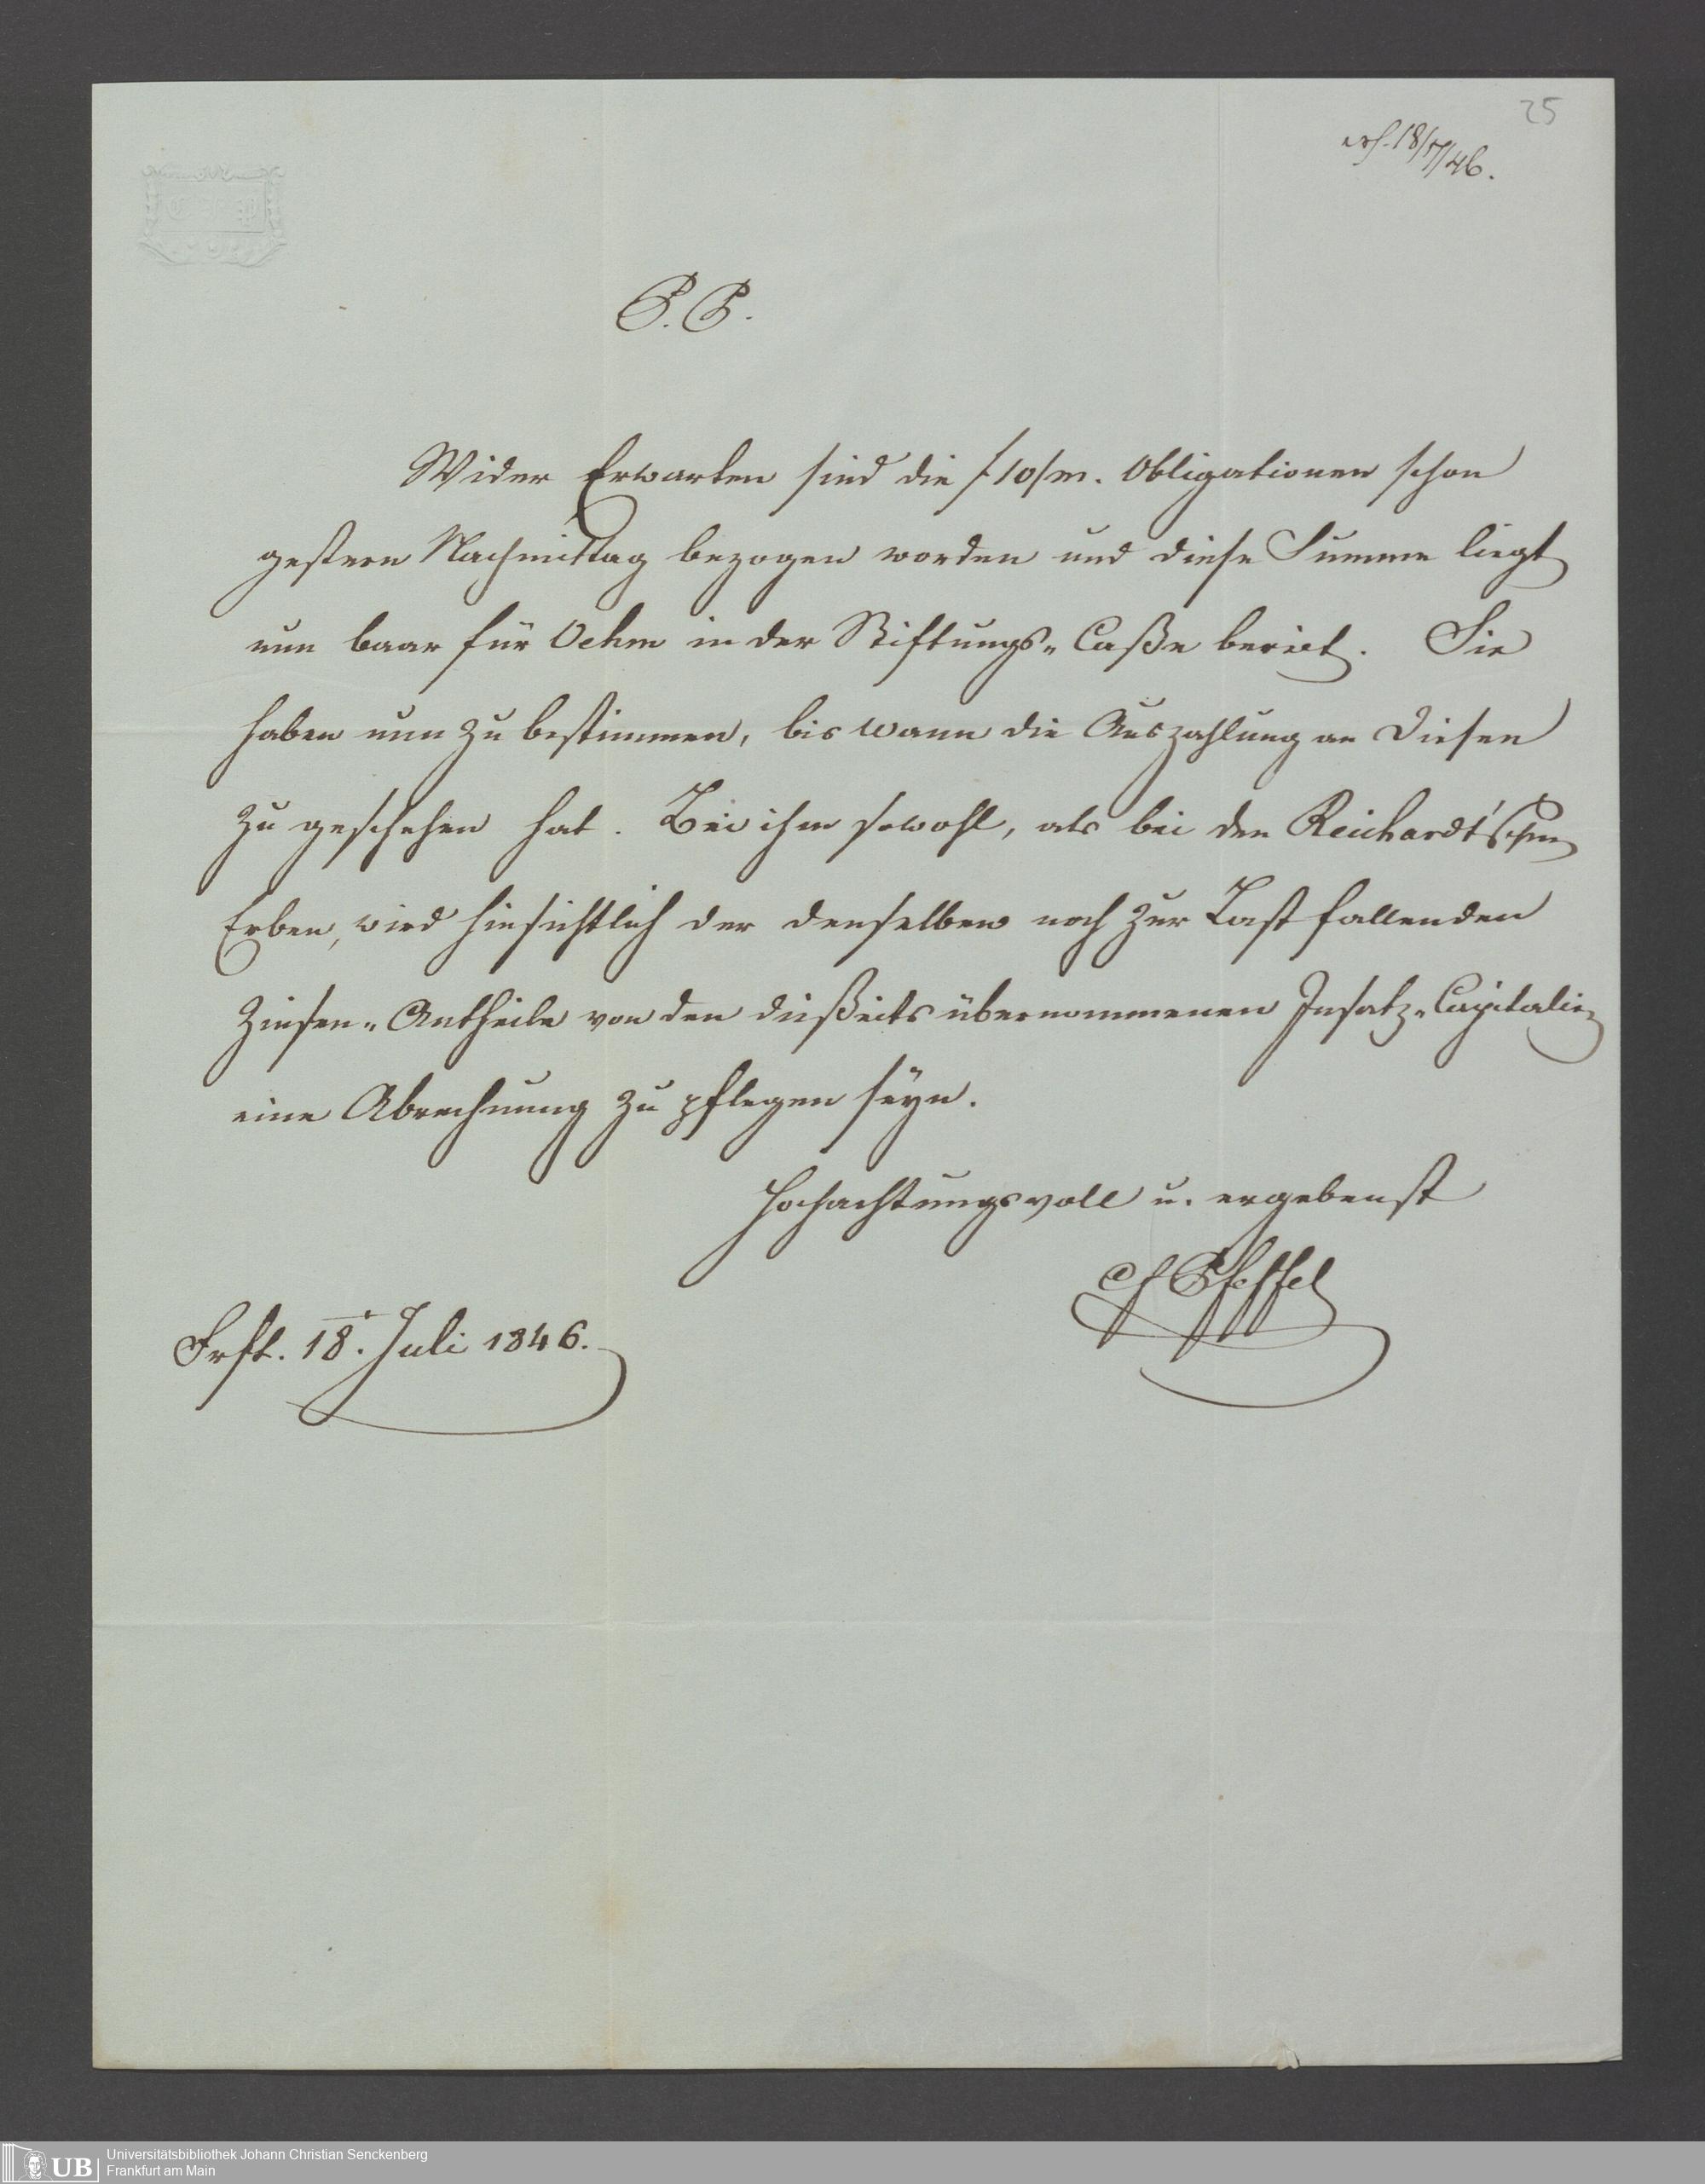 25
erh. 18/7/46.
P. P.
Wider Erwarten sind die f 10/m. Obligationen schon
gestern Nachmittag bezogen worden und diese Summe liegt
nun baar für Oehm in der Stiftungs-Caße bereit. Sie
haben nun zu bestimmen, bis wann die Auszahlung an Diesen
zu geschehen hat. Bei ihm sowohl, als bei den Reichardt'schen
Erben, wird hinsichtlich der denselben noch zur Last fallenden
Zinsen-Antheile von den dießeits übernommenen Insatz-Capitalien
eine Abrechnung zu pflegen seyn.
Hochachtungsvoll u. ergebenst
Pfeffel
Frft. 18. Juli 1846.
UB
Universitätsbibliothek Johann Christian Senckenberg
Frankfurt am Main